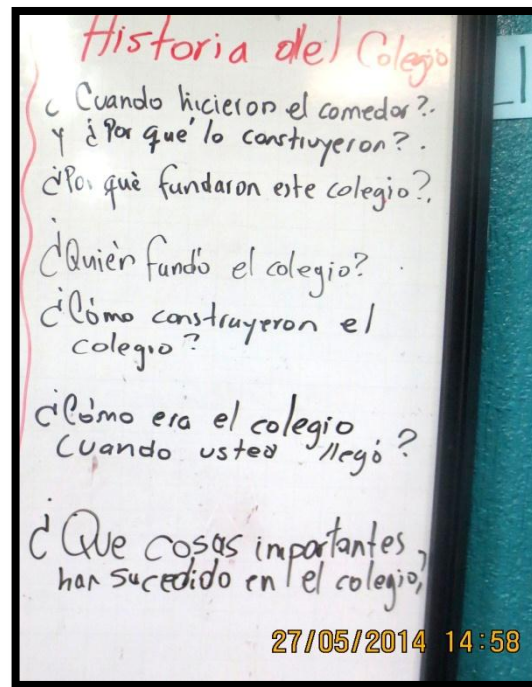 Historia del Colegio
¿Cuando hicieron el comedor?.
y ¿Por qué lo construyeron?.
¿Por qué fundaron este colegio?.
¿Quién fundó el colegio?
¿Cómo construyeron el
colegio?
¿Cómo era el colegio
cuando usted llegó?
¿Que cosas importantes
han sucedido en el colegio?
27/05/2014 14:58